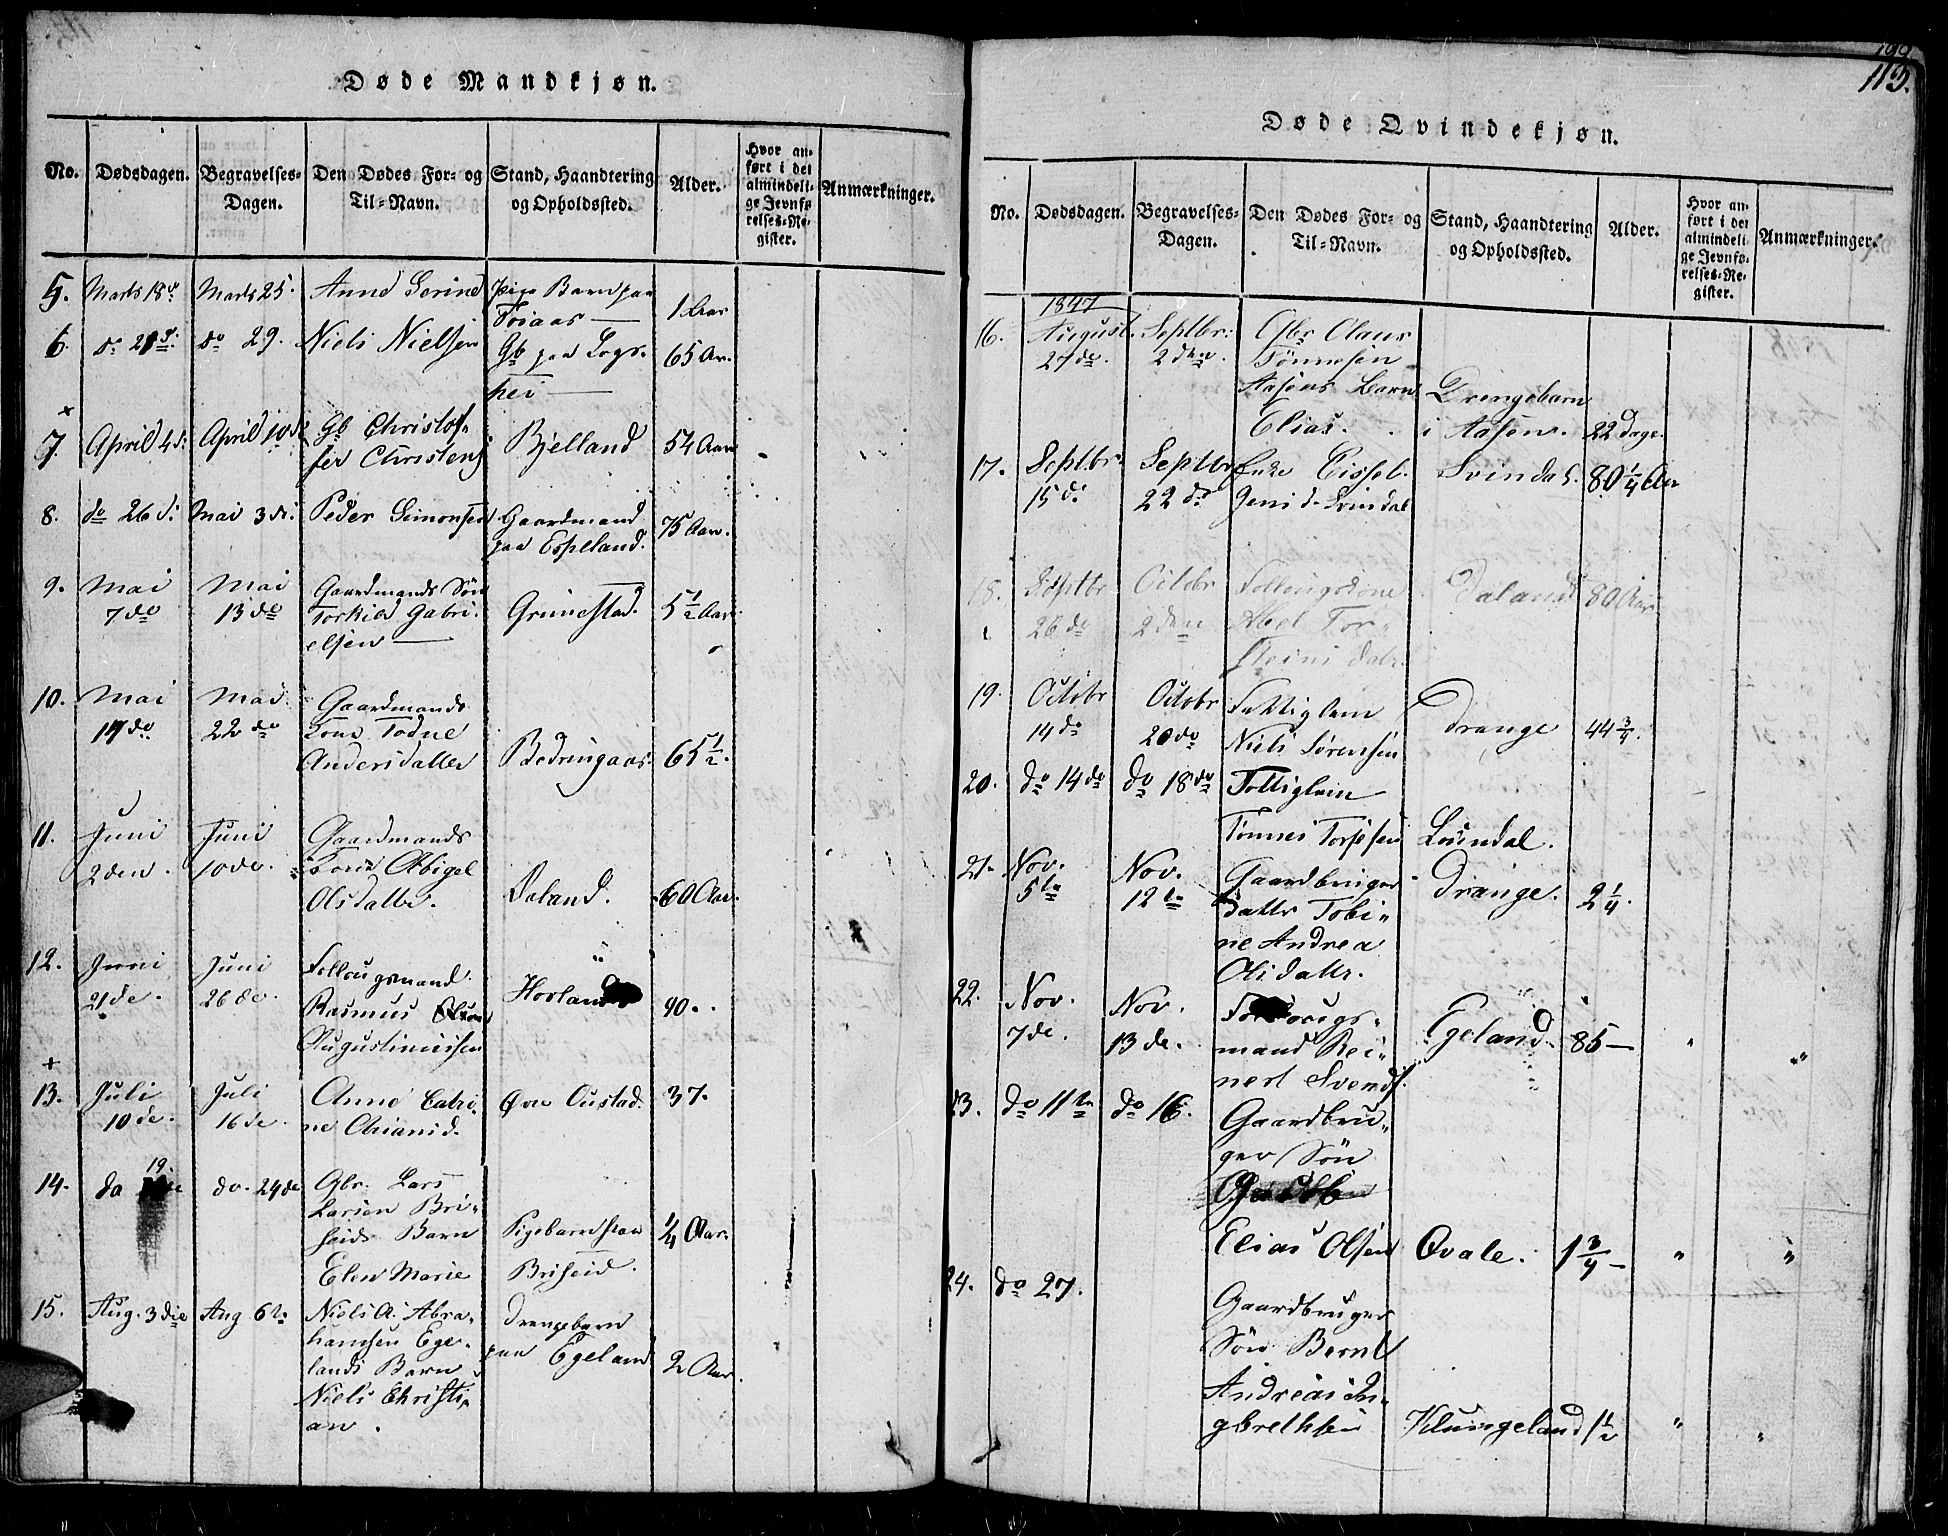 Døde Mandkjøn.
No. Dødsdagen. Begravelses-Dagen. Den Dødes For- og Til-Navn. Stand, Haandtering og Opholdssted. Alder. Hvor anført i det almindelige Jevnførelses-Register. Anmærkninger.
5. Marts 18de Marts 25. Anne Serine Pige Barn paa 1 Aar
6. do 21de do 29. Niels Nielsen Gb paa 65 Aar.
hei
7. April 4de April 10de Gb Christof- Bjelland 54 Aar
fer Christens
8. do 26de Mai 3de Peder Simonsen Gaardmand 75 Aar.
paa Espeland.
9. Mai Mai Gaardmands Søn
7de 13de Torkild Gabri- Grimestad. 5 1/2 Aar
elsen
10. Mai Mai Gaardmands
17de 22de Kone Todne
Andersdatter Bedringaas. 65 1/2.
11. Juni Juni Gaardmands
2den. 10de. Kone Abigel
Olsdatter. Daland. 60 Aar.
12. Juni Juni Follougsmand.
21de. 26de. Rasmus Horland 90.
Augustinussen
13. Juli Juli Anne Catri- Øvre Oustad. 37.
10de. 16de. ne Chrand.
19.
14. do do. 24de Gbr. Lars
Larsen Bri-
seids Barn Pigebarn paa 1/4 Aar.
Elen Marie Briseid.
15. Aug. 3die Aug 6te Niels A. Abra- Drengebarn
hamsen Ege- paa Egeland 2 Aar.
lands Barn
Niels Christi-
an.
115.
Døde Qvindekjøn.
No. Dødsdagen. Begravelses-Dagen. Den Dødes For- og Til-Navn. Stand, Haandtering og Opholdssted. Alder. Hvor anført i det almindelige Jevnførelses-Register. Anmærkninger.
1847
16. August Septbr: Gbr Claus
27de. 2den. Tønnesen
Aasens Barn Drengebarn
Elias. i Aasen. 22 Dage.
17. Septbr. Septbr Enke Sissel Svindal. 80 1/4 Aar
15de 22de Svindal
18. Septbr Octobr Follougskone Daland 80 Aar
26de 2den Abel Tor-
steinsdatr.
19. Octobr Octobr Fattiglem Drange 44 3/4.
14de 20de Niels Sørensen
20. do 14de do 18de Fattiglem
Tønnes Torjesen Losindal.
21. Nov. Nov. Gaardbruger Drange. 2 1/4.
5te 12te datter Tobi-
ne Andrea
Olsdatr.
22. Nov. Nov. Follougs-
7de. 13de. mand Rei- Egeland 85 —
nert Svends.
23. do 11te do 16. Gaardbru-
ger Søn
Elias Olsen Qvale. 1 3/4 —
24. do 27. Gaardbruger
Søn Bernt
Andreas In-
gbrethsen Klungeland 1 1/2